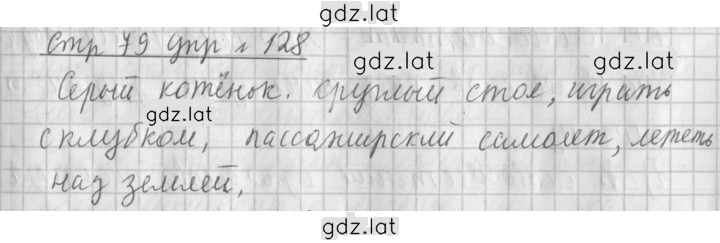 gdz.lat
Стр 79 упр № 128
gdz.lat gdz.lat
Серый котёнок. круглый стол, играть
gdz.lat
с клубком, пассажирский самолет, лететь
gdz.lat gdz.lat
над землей,
gdz.lat